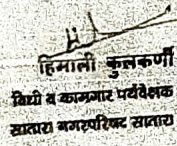 हिमाली कुलकर्णी
विधी व कामगार पर्यवेक्षक
सातारा नगरपरिषद सातारा